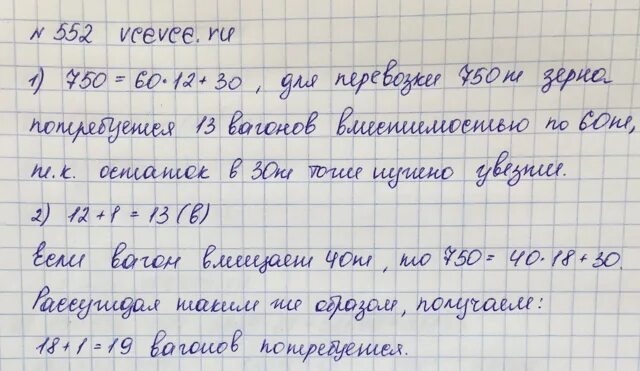 № 552 vcevce.ru
1) 750 = 60·12 + 30, для перевозки 750т зерна
потребуется 13 вагонов вместимостью по 60т,
т.к. остаток в 30т тоже нужно увезти.
2) 12 + 1 = 13 (в)
Если вагон вмещает 40т, то 750 = 40·18 + 30.
Рассуждая таким же образом, получаем:
18 + 1 = 19 вагонов потребуется.